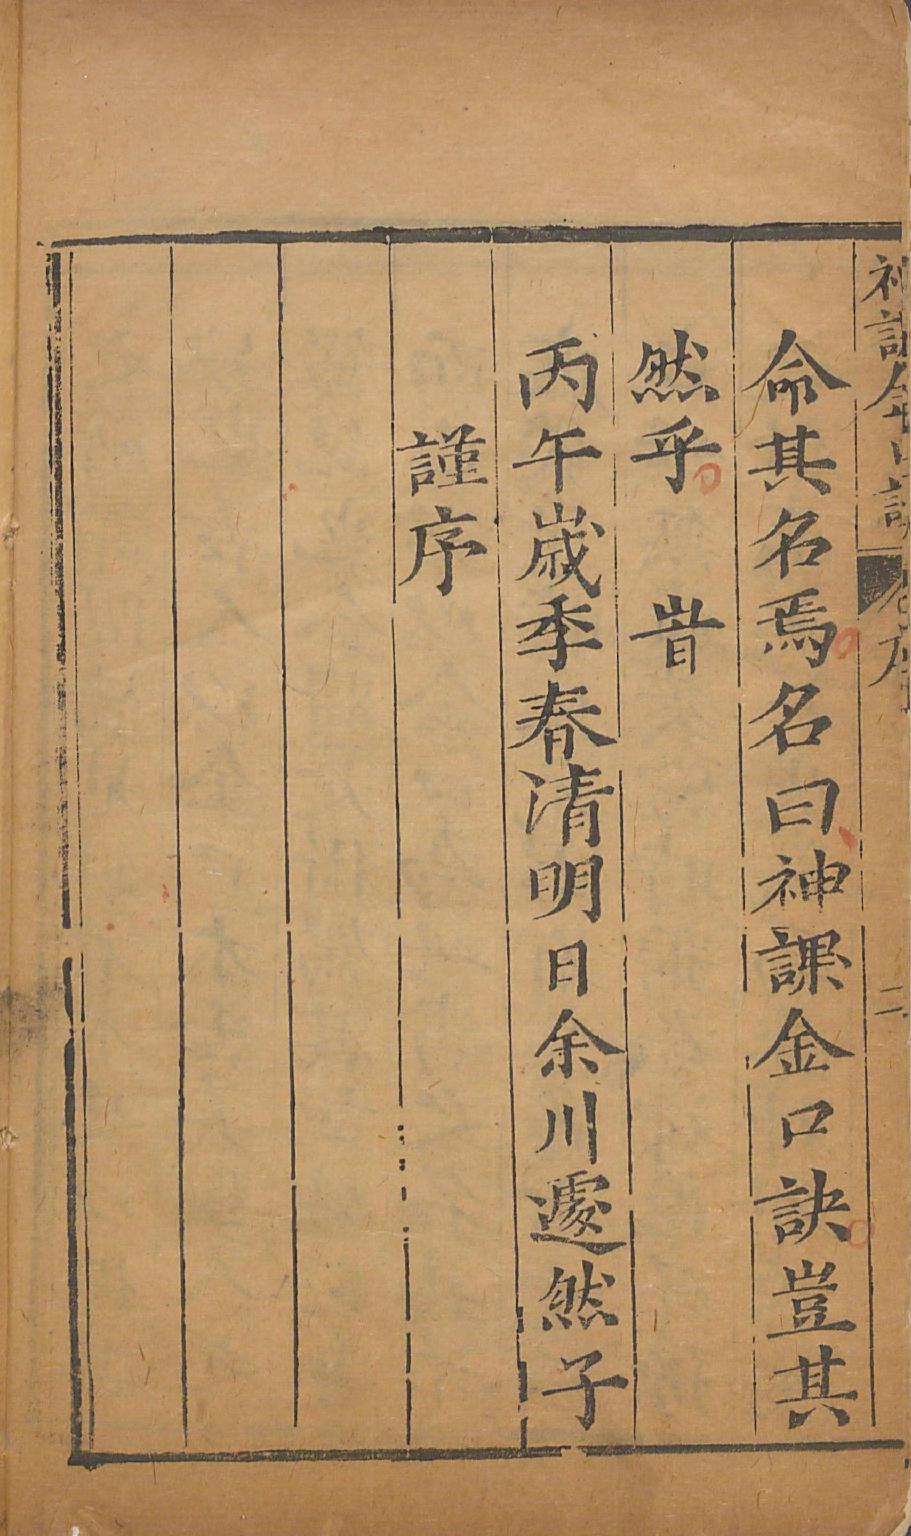 神課金口訣
二
命其名焉名曰神課金口訣豈其
然乎 旹
丙午嵗季春清明日余川遽然子
謹序